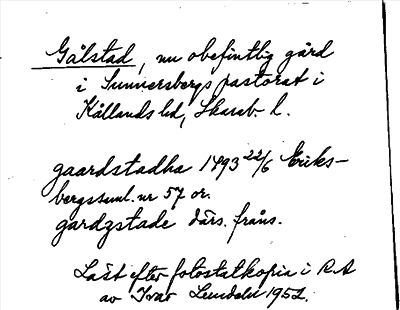 Gålstad, nu obefintlig gård
i Sunnersbergs pastorat i
Kållands hd, Skarab. l.
gaardstadha 1493 22/6 Eriks-
bergssaml. nr 57 or.
gardzstade därs. fråns.
Läst efter fotostatkopia i RA
av Ivar Lundahl 1952.